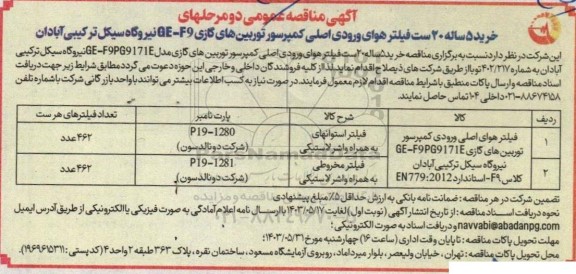 آگهی مناقصه عمومی دو مرحله‌ای
خرید ۵ ساله ۲۰ ست فیلتر هوای ورودی اصلی کمپرسور توربین های گازی GE-F9 نیروگاه سیکل ترکیبی آبادان
این شرکت در نظر دارد نسبت به برگزاری مناقصه خرید ۵ ساله ۲۰ ست فیلتر هوای ورودی اصلی کمپرسور توربین های گازی مدل GE-F9PG9171E نیروگاه سیکل ترکیبی
آبادان به شماره ۴۰۲/۲۱۷ تو با از طریق شرکت های ذیصلاح اقدام نماید. لذا از کلیه فروشندگان داخلی و خارجی این حوزه دعوت می گردد مطابق شرایط زیر جهت دریافت
اسناد مناقصه و ارسال پاکات منطبق باشرایط مناقصه اقدام لازم معمول فرمایند. در صورت نیاز به کسب اطلاعات بیشتر می توانند با واحد بازرگانی شرکت با شماره تلفن
۰۲۱-۸۸۶۷۴۱۵۸ داخلی ۱۰۴ تماس حاصل نمایند.
ردیف کالا شرح کالا پارت نامبر تعداد فیلترهای هر ست
۱ فیلتر هوای اصلی ورودی کمپرسور فیلتر استوانه‌ای P19-1280 ۴۶۲ عدد
توربین های گازی GE-F9PG9171E به همراه واشر لاستیکی (شرکت دونالدسون)
۲ نیروگاه سیکل ترکیبی آبادان فیلتر مخروطی P19-1281 ۴۶۲ عدد
کلاس F9-استاندارد EN779:2012 به همراه واشر لاستیکی (شرکت دونالدسون)
تضمین شرکت در هر مناقصه: ضمانت نامه بانکی به ارزش حداقل ۵٪ مبلغ پیشنهادی
نحوه دریافت اسناد مناقصه: از تاریخ انتشار آگهی (نوبت اول) لغایت ۱۴۰۳/۰۵/۱۷ با ارسال نامه اعلام آمادگی به صورت فیزیکی یا الکترونیکی از طریق آدرس ایمیل
navvabi@abadanpg.com و دریافت اسناد به صورت الکترونیکی؛
مهلت تحویل پاکات مناقصه: تا پایان وقت اداری (ساعت ۱۶) چهارشنبه مورخ ۱۴۰۳/۰۵/۳۱؛
محل تحویل پاکات مناقصه: تهران، خیابان ولیعصر، بلوار میرداماد، روبروی آزمایشگاه مسعود، ساختمان نقره، پلاک ۳۶۳ طبقه ۲ واحد ۴ (کدپستی: ۱۹۶۹۶۱۵۳۱۱).